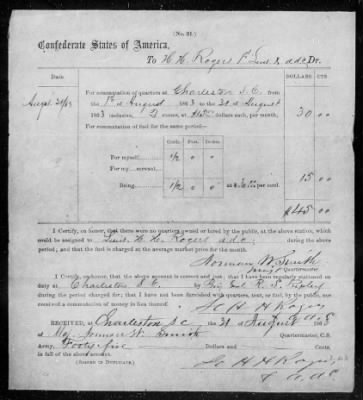 (No. 21.)
Confederate States of America,
To H. H. Rogers 1st Lieut & adc Dr.
DATE
DOLLARS CTS
Augst 31/63
For commutation of quarters at Charleston S.C. from
the 1st of August 1863 to the 31st of August
1863 inclusive, 2 rooms, at dollars each, per month, 30 00
For commutation of fuel for the same period—
Cords. Feet. Inches.
For myself, 1/2 0 0
For my servant,
Being, 1/2 0 0 at $ per cord. 15 00
$45 00
I Certify, on honor, that there are no quarters owned or hired by the public, at the above station, which
could be assigned to Lieut. H. H. Rogers adc; during the above
period, and that the fuel is charged at the average market price for the month.
Norman W. Smith
Maj & Quartermaster.
I Certify, that the above account is correct and just; that I have been regularly stationed on
duty at Charleston S.C. by Brig Genl R. S. Ripley
during the period charged for; that I have not been furnished with quarters, tent, or fuel, by the public, nor received
a commutation of money in lieu thereof.
H H Rogers
RECEIVED, at Charleston SC the 31 of August 1863
of Maj Norman W. Smith Quartermaster, C.S.
Army, Forty five Dollars and Cents,
in full of the above account.
(SIGNED IN DUPLICATE.)
H H Rogers